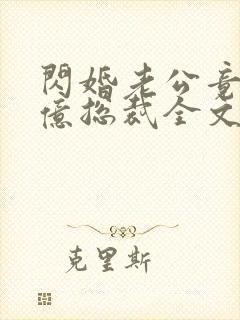 閃婚老公竟
億總裁全文
克里斯